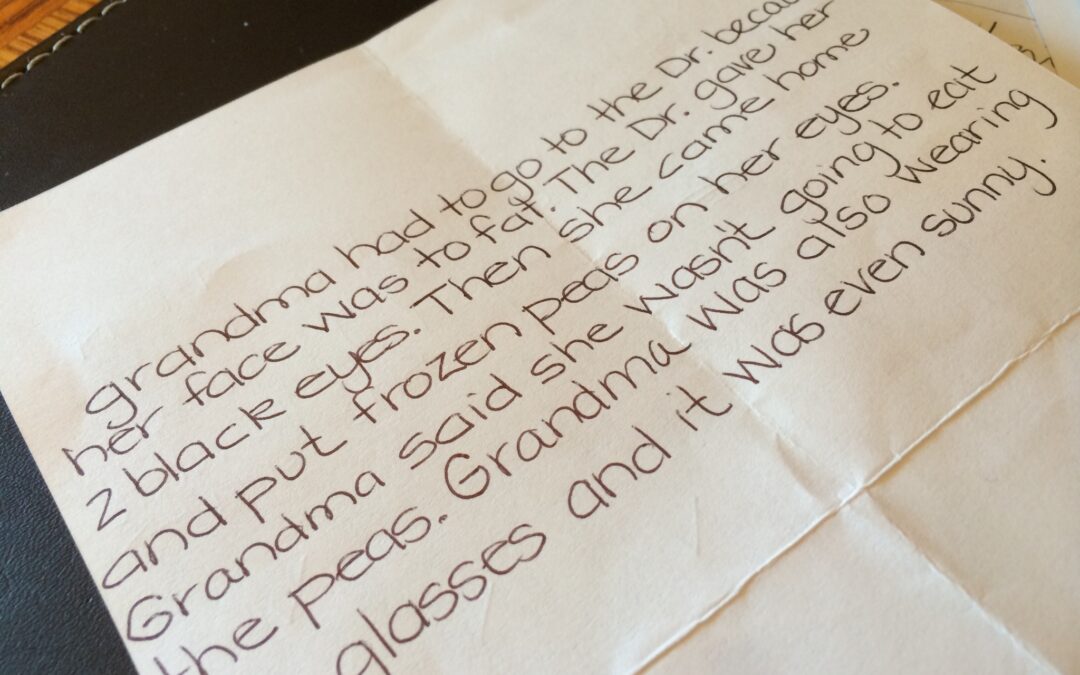 grandma had to go to the Dr. becau
her face was to fat. The Dr. gave her
2 black eyes. Then she came home
and put frozen peas on her eyes.
Grandma said she wasn't going to eat
the peas. Grandma was also wearing
glasses and it was even sunny.